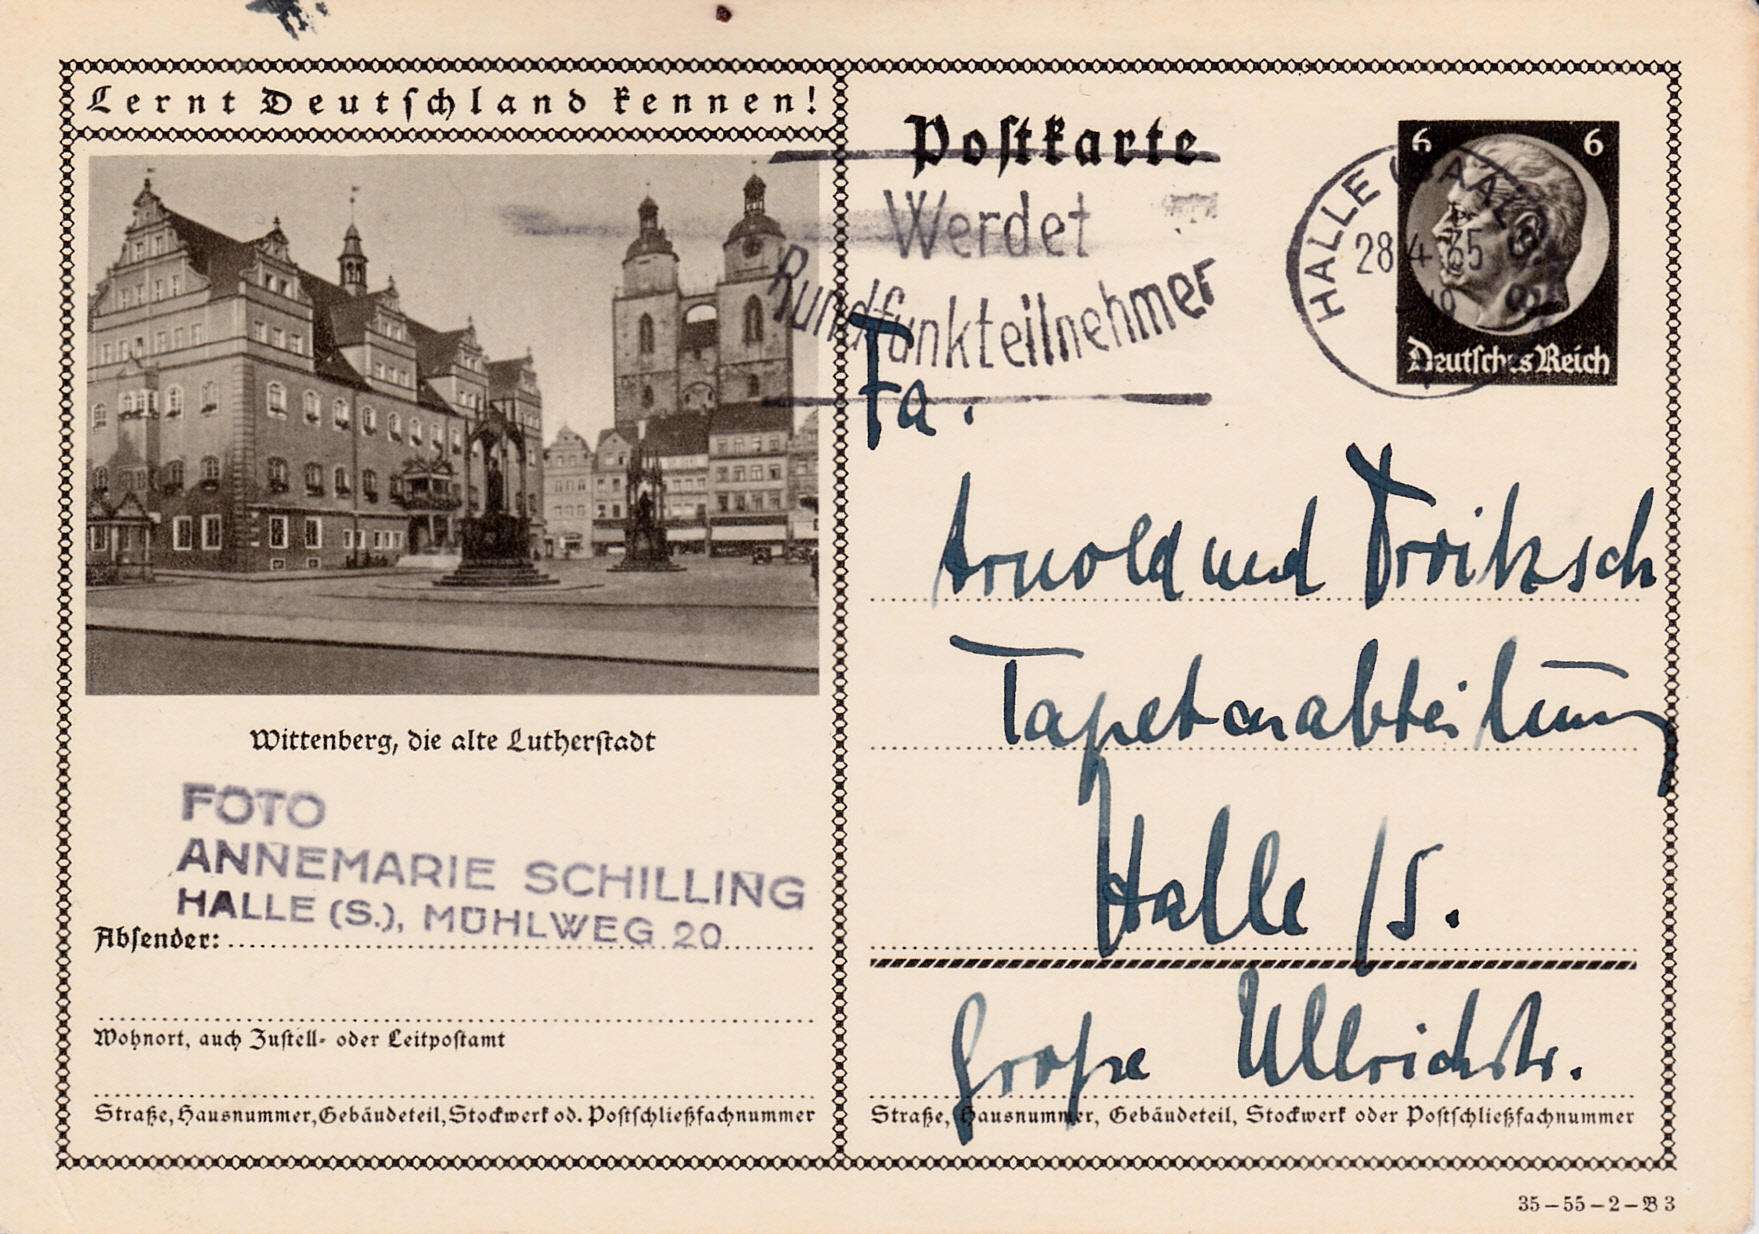 Lernt Deutschland kennen!
Wittenberg, die alte Lutherstadt
FOTO
ANNEMARIE SCHILLING
HALLE (S.), MÜHLWEG 20
Absender:
Wohnort, auch Zustell- oder Leitpostamt
Straße, Hausnummer, Gebäudeteil, Stockwerk od. Postschließfachnummer
Postkarte
Werdet
Rundfunkteilnehmer
HALLE (SAALE)
28.4.35
6 6
Deutsches Reich
Fa.
Arnold und Troitzsch
Tapetenabteilung
Halle /S.
Große Ullrichstr.
Straße, Hausnummer, Gebäudeteil, Stockwerk oder Postschließfachnummer
35-55-2-B3